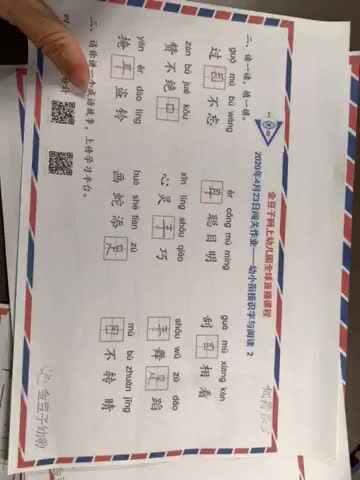 金豆子网上幼儿园全球直播课程
2020年4月23日闯关作业——幼小衔接识字与阅读 2
一、读一读，描一描。
guò mù bù wàng ěr cōng mù míng guā mù xiāng kàn
过目不忘 耳聪目明 刮目相看
zàn bù jué kǒu xīn líng shǒu qiǎo shǒu wǔ zú dǎo
赞不绝口 心灵手巧 手舞足蹈
yǎn ěr dào líng huà shé tiān zú mù bù zhuǎn jīng
掩耳盗铃 画蛇添足 目不转睛
二、请你讲一个成语故事，上传学习平台。
金豆子幼教